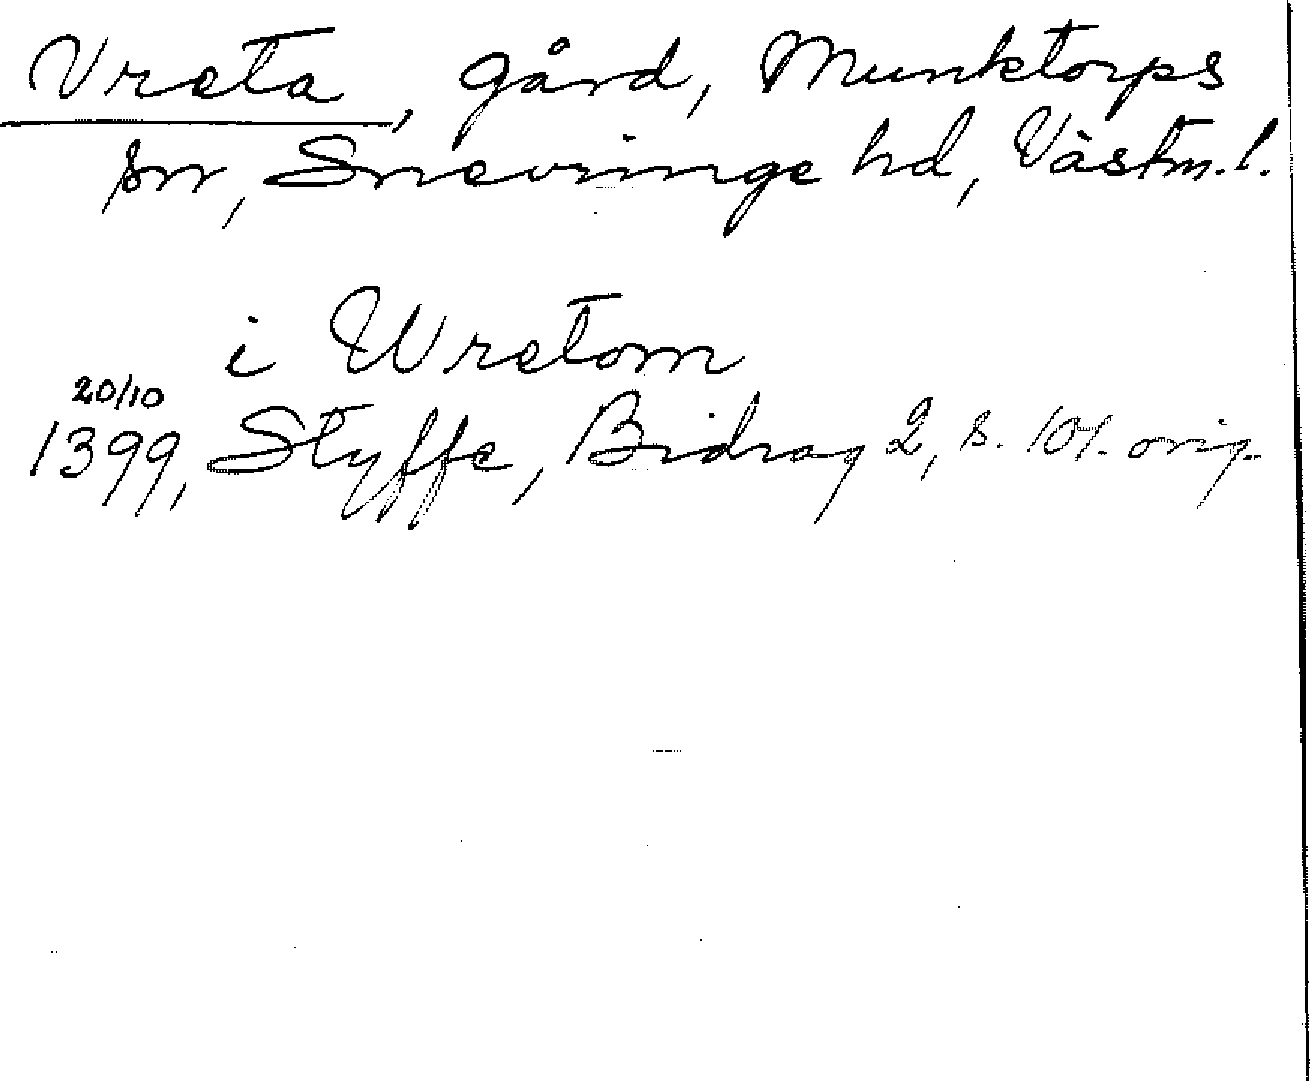 Vreta, gård, Munktorps
sn, Snevringe hd, Västm. l.
i Wretom
20/10
1399, Styffe, Bidrag 2, s. 101. orig.